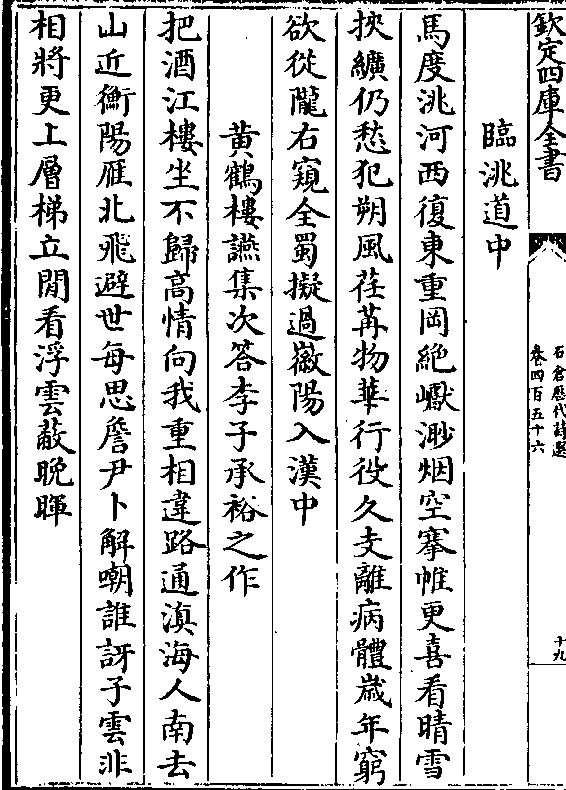 欽定四庫全書
石倉歷代詩選
卷四百五十六
十九
臨洮道中
馬度洮河西復東重岡絶巘渺烟空搴帷更喜看晴雪
挾纊仍愁犯朔風荏苒物華行役久支離病體嵗年窮
欲從隴右窺全蜀擬過徽陽入漢中
黄鶴樓讌集次答李子承裕之作
把酒江樓坐不歸高情向我重相違路通滇海人南去
山近衡陽雁北飛避世每思詹尹卜解嘲誰訝子雲非
相將更上層梯立閒看浮雲蔽晩暉